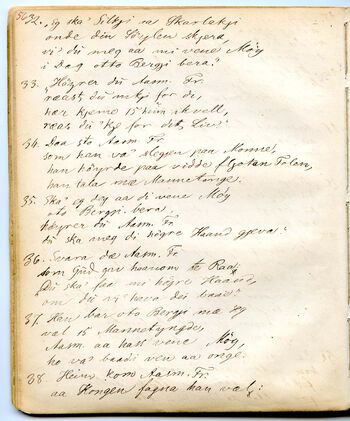 56
32. "Eg ska' Silkji aa Skarlakji
onde din Föylen skjera,
vi' du meg aa mi vene Möy
i Dag otto Bergji bera?"
33. "Höyrer du Aasm. Fr.
ræast du inkji for de,
her kjeme 15 hum i kvell,
ræas du 'kje for ditt Liv?"
34. Daa sto Aasm. Fr.
som han va' slegen paa Monne,
han höyrde paa vidde Folen,
han tala mæ Mannetunge.
35. Ska' eg deg aa di vene Möy
oto Bergji bera,
höyrer du Aasm. Fr.
du ska meg di högre Haand gjeva?
36. Svara dæ Aasm. Fr.
som Gud gav honom te Raa,
"Du ska' faa mi högre Haand,
om du vi' hava dei baae."
37. Han bar oto Bergji mæ seg
vel 15 Mannetyngde,
Aasm. aa hass vene Möy,
ho va' baadi ven aa onge.
38. Heim kom Aasm. Fr.
aa Kongen fagna han væl: